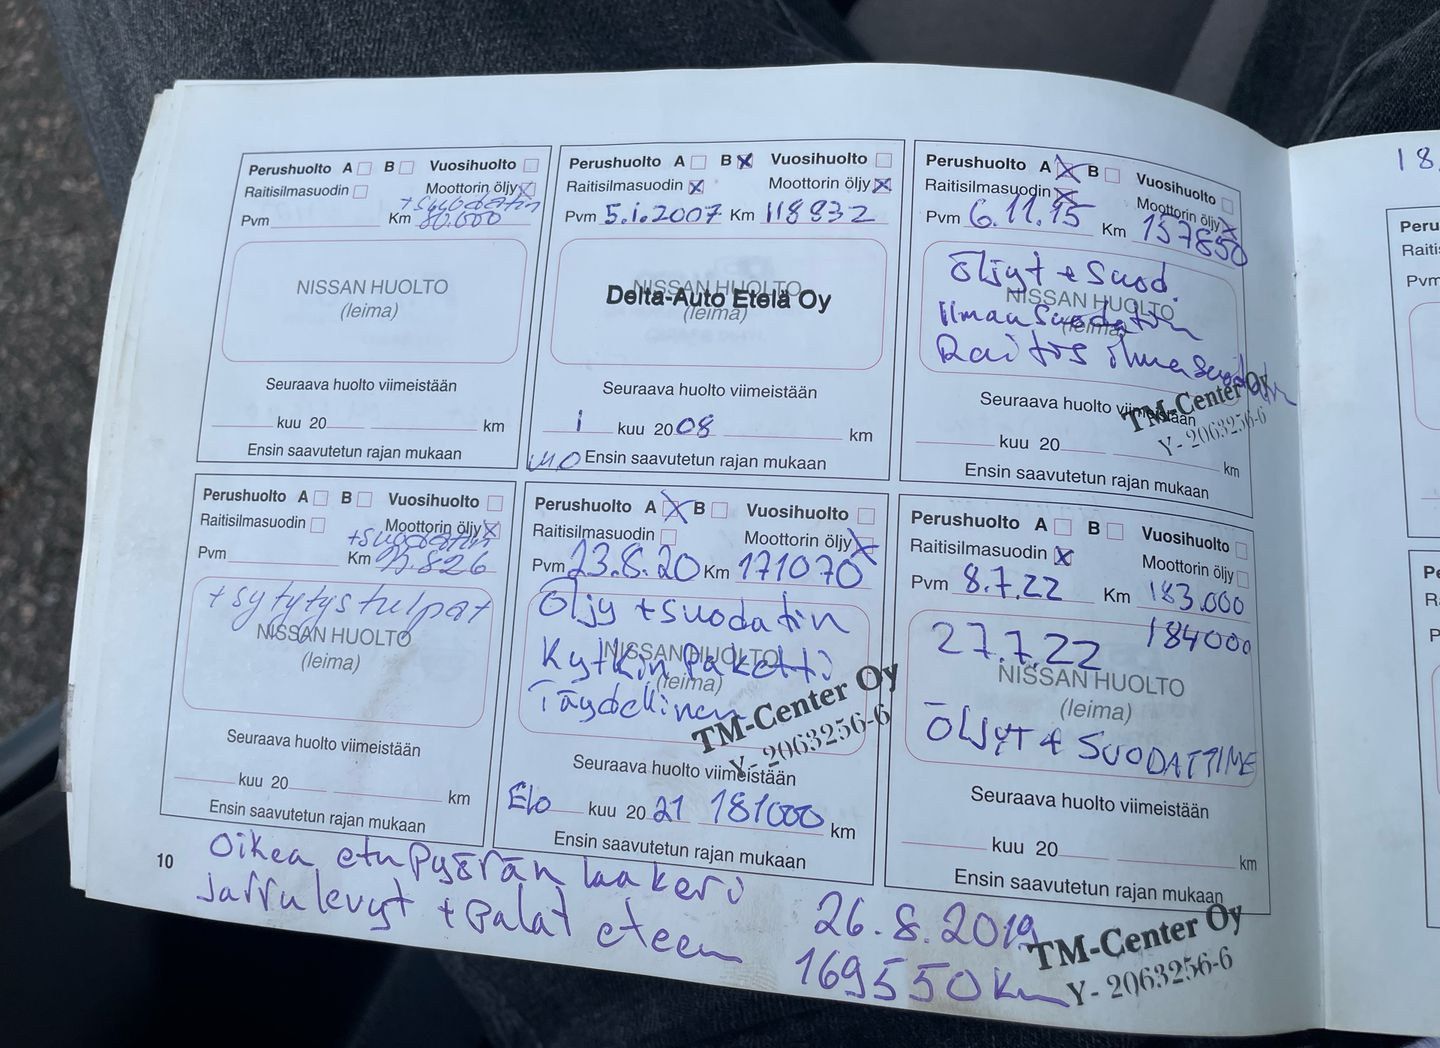 Perushuolto A B Vuosihuolto
Raitisilmasuodin Moottorin öljy
+suodatin
Pvm Km 80.000
NISSAN HUOLTO
(leima)
Seuraava huolto viimeistään
kuu 20 km
Ensin saavutetun rajan mukaan
Perushuolto A B Vuosihuolto
Raitisilmasuodin Moottorin öljy
Pvm 5.1.2007 Km 118832
NISSAN HUOLTO
Delta-Auto Etelä Oy
(leima)
Seuraava huolto viimeistään
1 kuu 2008 km
Ensin saavutetun rajan mukaan
Perushuolto A B Vuosihuolto
Raitisilmasuodin Moottorin öljy
Pvm 6.11.15 Km 157850
Öljyt + Suod.
NISSAN HUOLTO
Ilmansuodatin
(leima)
Raitis ilmasuodatin
Seuraava huolto viimeistään
TM-Center Oy
Y- 2063256-6
kuu 20 km
Ensin saavutetun rajan mukaan
Perushuolto A B Vuosihuolto
Raitisilmasuodin Moottorin öljy
+suodatin
Pvm Km
+ sytytystulpat
NISSAN HUOLTO
(leima)
Seuraava huolto viimeistään
kuu 20 km
Ensin saavutetun rajan mukaan
Perushuolto A B Vuosihuolto
Raitisilmasuodin Moottorin öljy
Pvm 23.8.20 Km 171070
Öljy + suodatin
NISSAN HUOLTO
Kytkin paketti
(leima)
Täydellinen
TM-Center Oy
Y- 2063256-6
Seuraava huolto viimeistään
Elo kuu 2021 181000 km
Ensin saavutetun rajan mukaan
Perushuolto A B Vuosihuolto
Raitisilmasuodin Moottorin öljy
Pvm 8.7.22 Km 183.000
27.7.22 184000
NISSAN HUOLTO
(leima)
ÖLJYT + SUODATTIME
Seuraava huolto viimeistään
kuu 20 km
Ensin saavutetun rajan mukaan
10
Oikea etupyörän laakeri
Jarrulevyt + Palat eteen
26.8.2019
169550 km
TM-Center Oy
Y- 2063256-6
18.
Peru
Raitis
Pvm
Pe
Ra
P